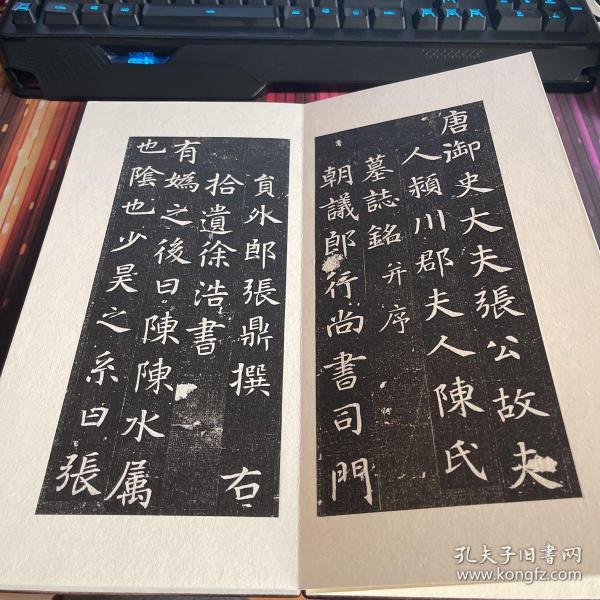 唐御史大夫張公故夫
人潁川郡夫人陳氏
墓誌銘并序
朝議郎行尚書司門
員外郎張鼎撰 右
拾遺徐浩書
有嬀之後曰陳陳水属
也陰也少昊之系曰張
孔夫子旧书网
www.kongfz.com